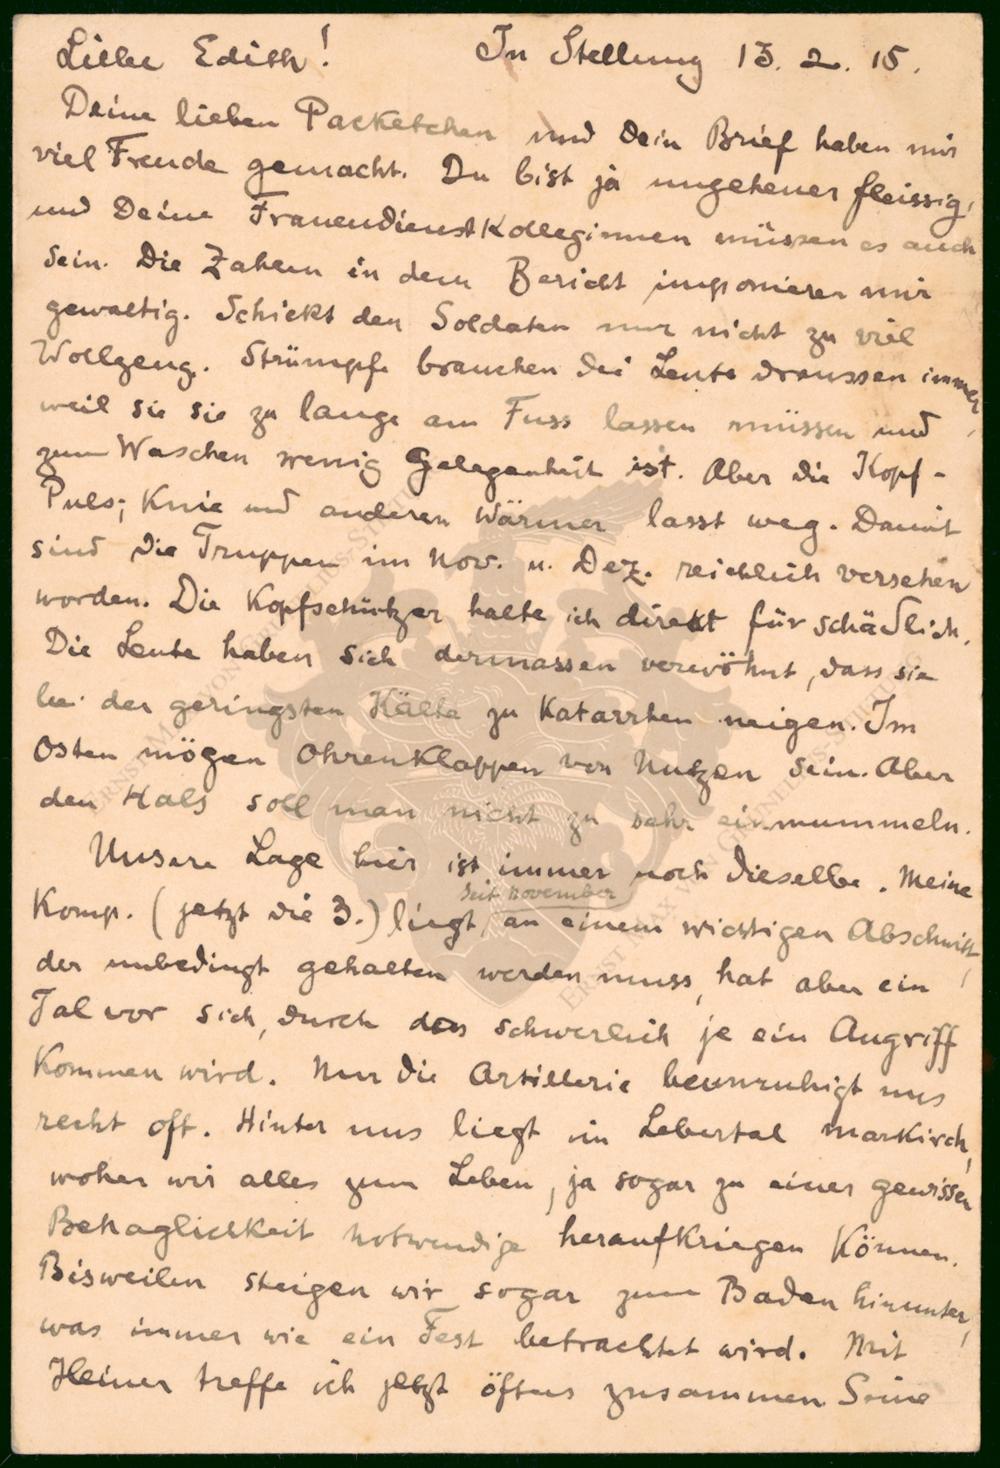 Liebe Edith! In Stellung 13. 2. 15.
Deine lieben Packetchen und dein Brief haben mir
viel Freude gemacht. Du bist ja ungeheuer fleissig,
und Deine Frauendienstkolleginnen müssen es auch
sein. Die Zahlen in dem Bericht imponieren mir
gewaltig. Schickt den Soldaten nur nicht zu viel
Wollzeug. Strümpfe brauchen die Leute draussen immer,
weil sie sie zu lange am Fuss lassen müssen und
zum Waschen wenig Gelegenheit ist. Aber die Kopf-
Puls-, Knie und anderen Wärmer lasst weg. Damit
sind die Truppen im Nov. u. Dez. reichlich versehen
worden. Die Kopfschützer halte ich direkt für schädlich.
Die Leute haben sich dermassen verwöhnt, dass sie
bei der geringsten Kälte zu Katarrhen neigen. Im
Osten mögen Ohrenklappen von Nutzen sein. Aber
den Hals soll man nicht zu sehr einmummeln.
Unsere Lage hier ist immer noch dieselbe. Meine
seit November
Komp. (jetzt die 3.) liegt an einem wichtigen Abschnitt,
der unbedingt gehalten werden muss, hat aber ein
Tal vor sich, durch das schwerlich je ein Angriff
kommen wird. Nur die Artillerie beunruhigt uns
recht oft. Hinter uns liegt im Lebertal Markirch,
woher wir alles zum Leben, ja sogar zu einer gewissen
Behaglichkeit notwendige heraufkriegen können.
Bisweilen steigen wir sogar zum Baden hinunter,
was immer wie ein Fest betrachtet wird. Mit
Heiner treffe ich jetzt öfters zusammen. Seine
ERNST MAX VON GRUNELIUS-STIFTUNG
ERNST MAX VON GRUNELIUS-STIFTUNG